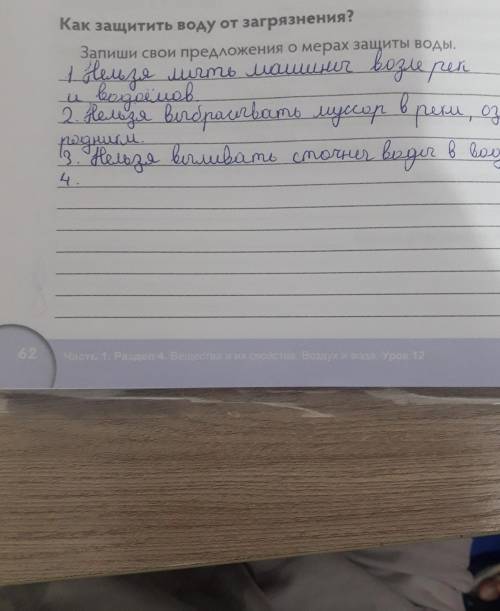 Как защитить воду от загрязнения?
Запиши свои предложения о мерах защиты воды.
1 Нельзя мыть машины возле рек
и водоёмов.
2. Нельзя выбрасывать муссор в реки, оз
родники.
3. Нельзя выливать сточны воды в вод
4.
62 Часть 1. Раздел 4. Вещества и их свойства. Воздух и вода. Урок 12